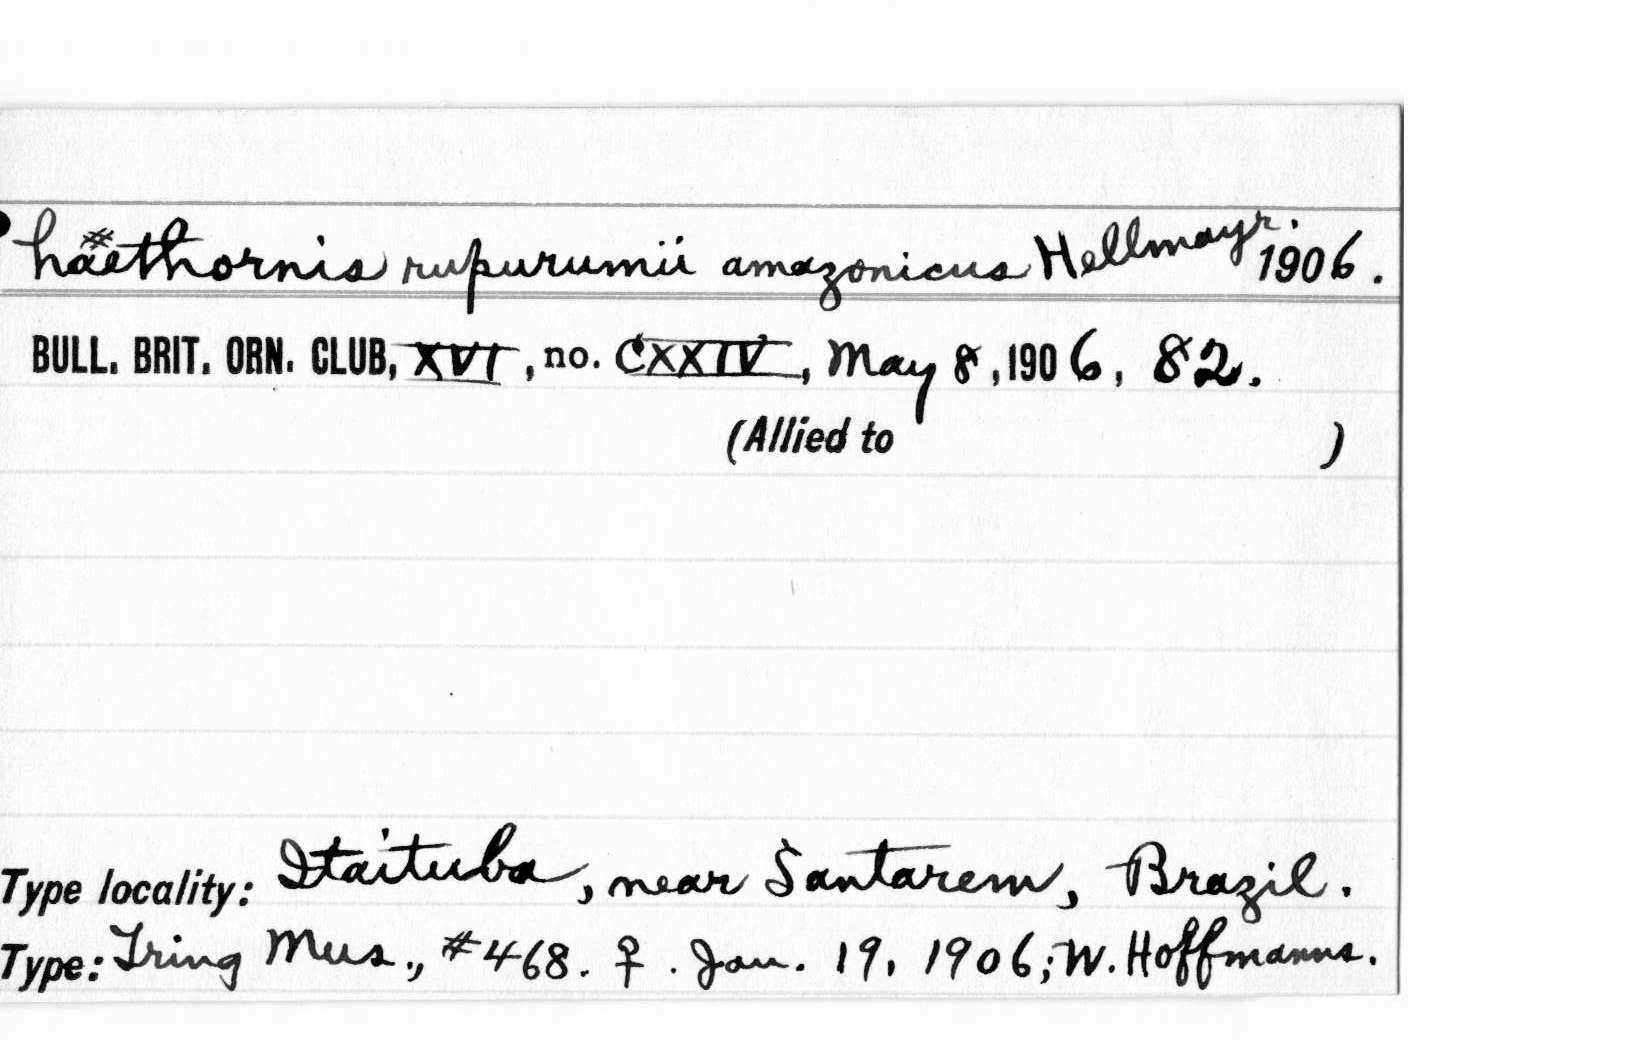 Phaethornis rupurumii amazonicus Hellmayr. 1906.
BULL. BRIT. ORN. CLUB, XVI, no. CXXIV, May 8, 1906, 82.
(Allied to )
Type locality: Itaituba, near Santarem, Brazil.
Type: Tring Mus., #468. ♀. Jan. 19, 1906; W. Hoffmanns.